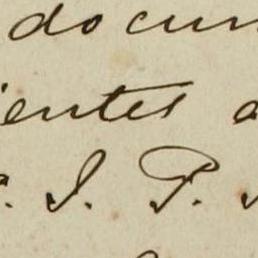 docum
ientes a
a. I. P.